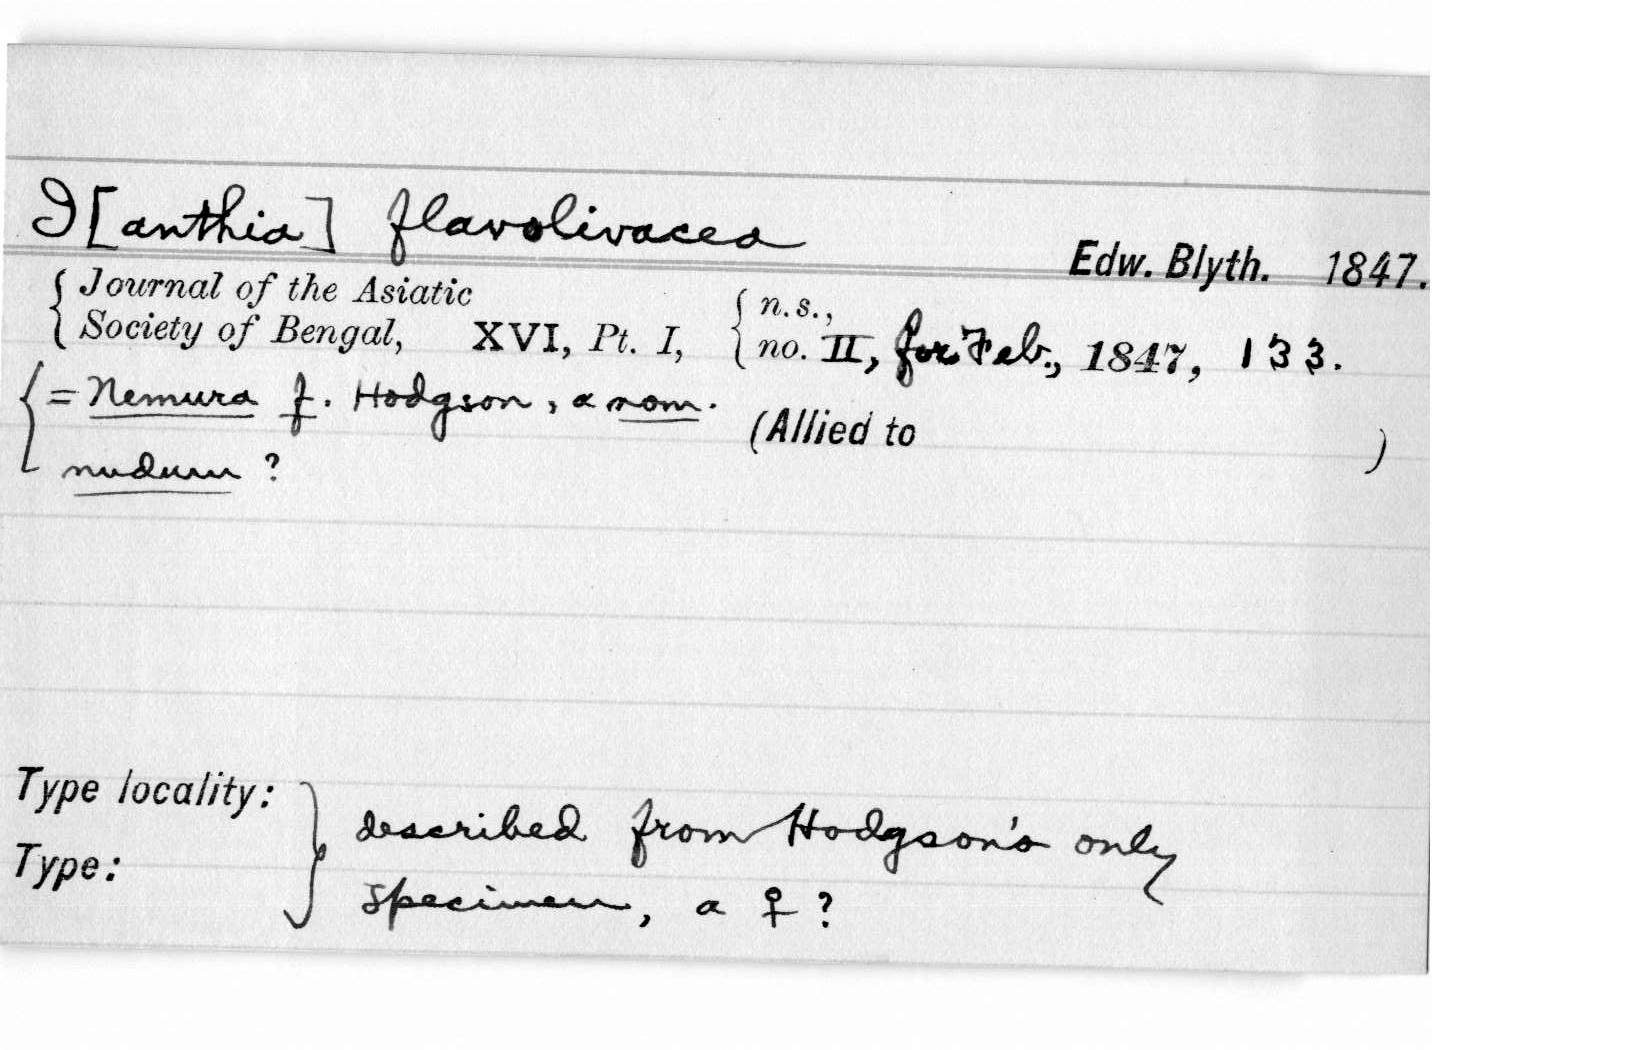 I[anthia] flavolivacea
Edw. Blyth. 1847.
{ Journal of the Asiatic
Society of Bengal, XVI, Pt. I, { n.s.,
no. II, for Feb., 1847, 133.
{ = Nemura f. Hodgson, a nom.
nudum ?
(Allied to )
Type locality:
Type:
} described from Hodgson's only
specimen, a ♀ ?